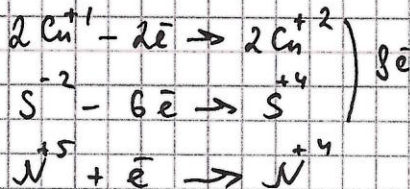 2 Cu⁺¹ - 2ē → 2 Cu⁺²
S⁻² - 6ē → S⁺⁴ ) 8ē
N⁺⁵ + ē → N⁺⁴